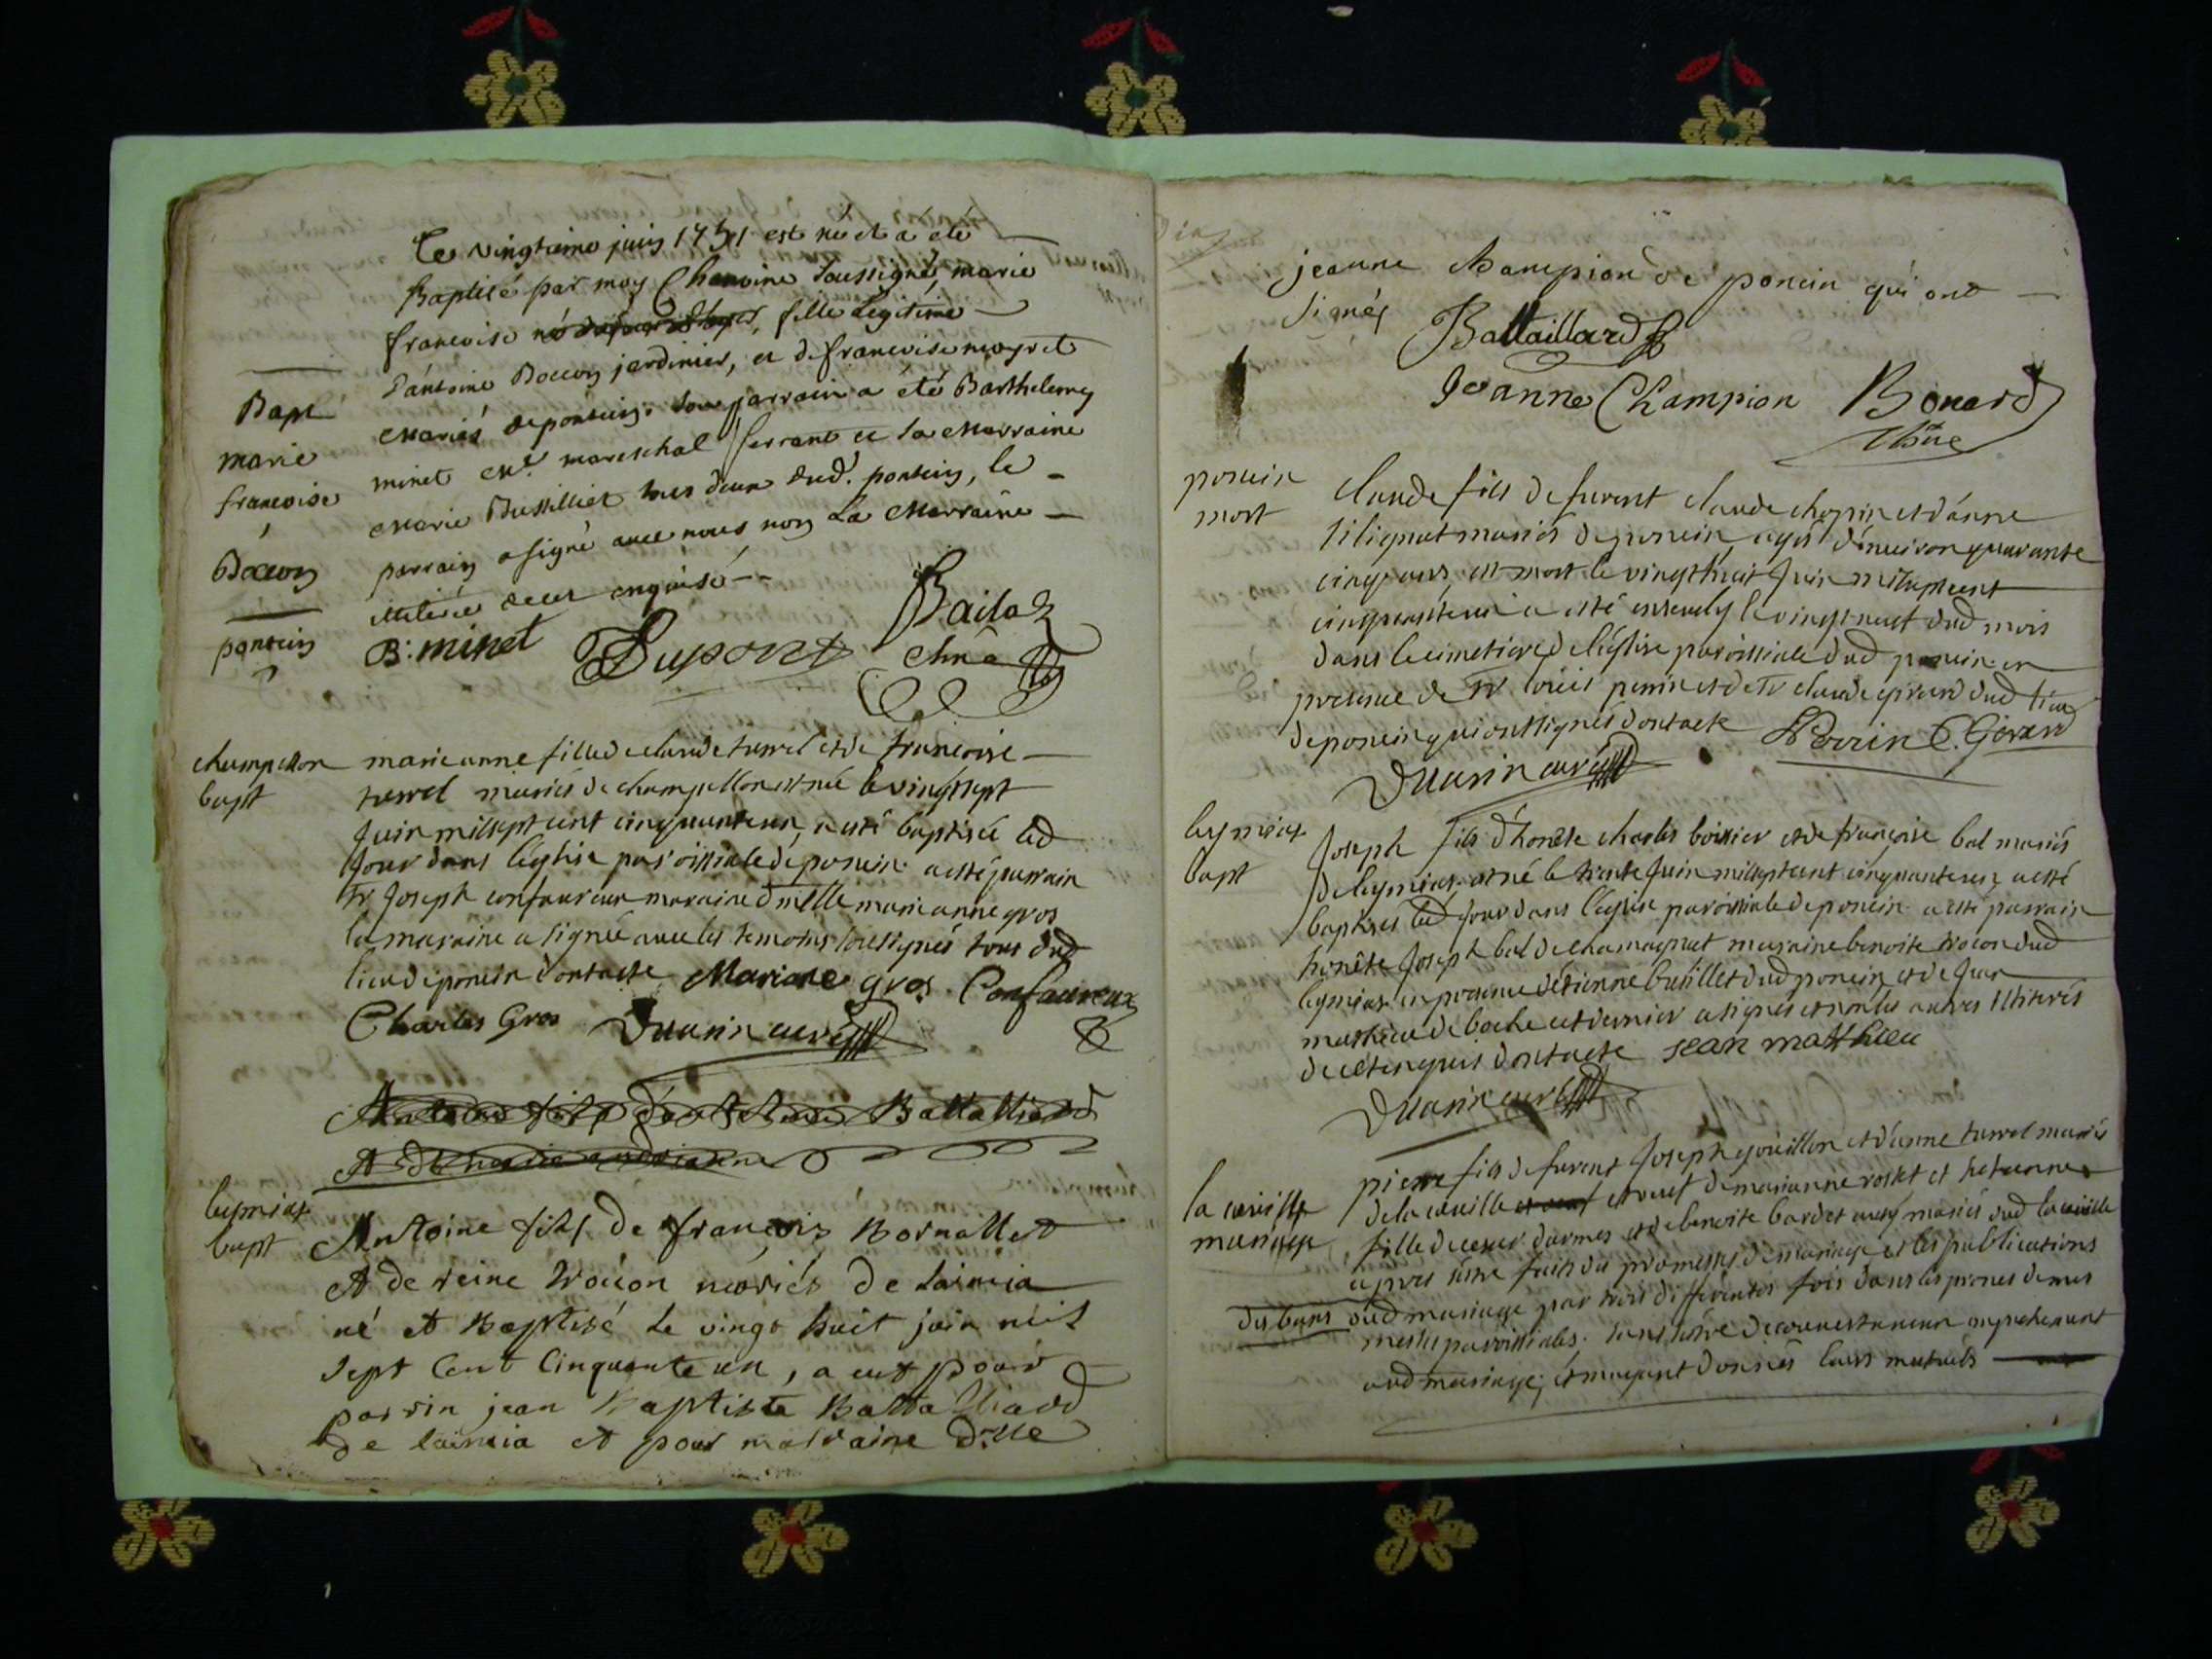 Le vingtieme juin 1751 est né et a été
Baptisé par moy Chanoine soussigné, marie
francoise fille Legitime
D'antoine Docecon jardinier, et de francoise neyret
Mariés de pontcin. son parrain a été Barthelemy
minet Me. mareschal ferrant et la Marraine
Marie Bussilliet tous deux dud. pontcin, le
parrain a signé avec nous non La Marraine
illiterée de ce enquise
Bapt
marie
francoise
pontcin
B: minet Dupont Bailad
chne
champellon
bapt
marie anne fille de claude turrel et de francoise
turrel mariés de champellon est née le vingtsept
Juin mil sept cent cinquante un, a esté baptisée led
Jour dans léglise paroissiale de poncin a esté parrain
Sr Joseph confavreux maraine dmlle marie anne gros
la maraine a signée avec les temoins soussignés tous dud
lieu de poncin dont acte Mariane gros Confavreux
Charles Gros Duarin curé
leymiat
bapt
Antoine fils de françois Bornallet
Et de reine Trocon mariés de laimia
né Et Baptisé Le vingt huit juin mil
sept Cent Cinquante un, a eut pour
parrin jean Baptiste Battalliard
de laimia et pour malraine dlle
jeanne Champion de poncin qui ont
signés
Battaillard
Jeanne Champion Bonard
chne
poncin
mort
claude fils de furent claude chopin et d'anne
Silignat mariés de poncin, agé d'environ quarante
cinq ans, est mort le vingthuit Juin mil sept cent
cinquante un a esté ensevely le vingt neuf dud mois
dans le cimetiere de léglise paroissiale dud poncin en
presence de Sr louis perrin et de Sr claude girard dud lieu
de poncin qui ont signés dont acte LPerrin C. Girard
Duarin curé
leymiat
bapt
Joseph fils d'honete charles boissier et de françoise bal mariés
de leymiat, est né le trente Juin mil sept cent cinquante un, a esté
baptisés led Jour dans léglise paroissiale de poncin a esté parrain
honête Joseph bal de chamagnat maraine benoite trocon dud
leymiat en presence d'étienne butillet dud poncin, et de Jean
mathieu de boche cet dernier a signés et non les autres illiterés
de ce enquis dont acte jean matthieu
Duarin curé
la cueille
mariage
pierre fils de furent Joseph goüillon et d'anne turrel mariés
de la cueille et veuf de marianne rosset et
fille de cesar darmes et de benoite bardet mariés dud la cueille
apres sestre faits des promesses de mariage et les publications
des bans dud mariage par trois differentes fois dans les prones de mes
messes paroissiales, sans sestre decouvert aucun empechement
aud mariage, et mayant donnés leurs mutuels